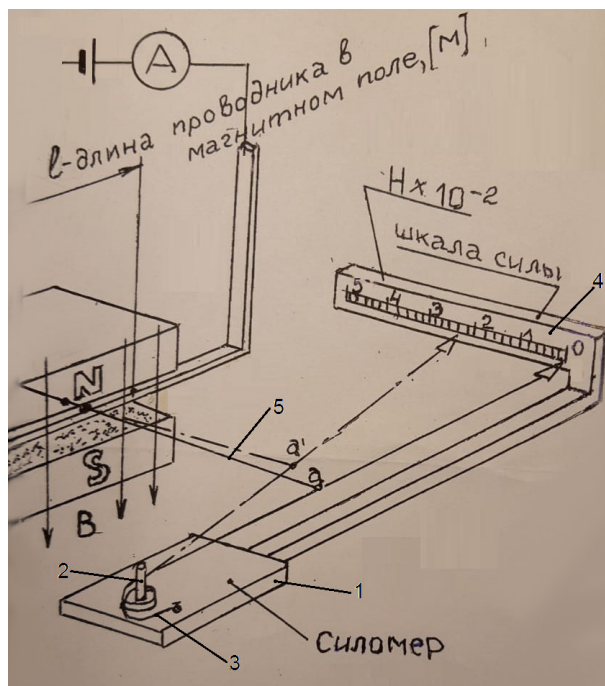 A
l-длина проводника в
магнитном поле, [м]
Н x 10⁻²
шкала силы
4
5 4 3 2 1 0
N
5
a'
a
S
B
2
1
3
Силомер